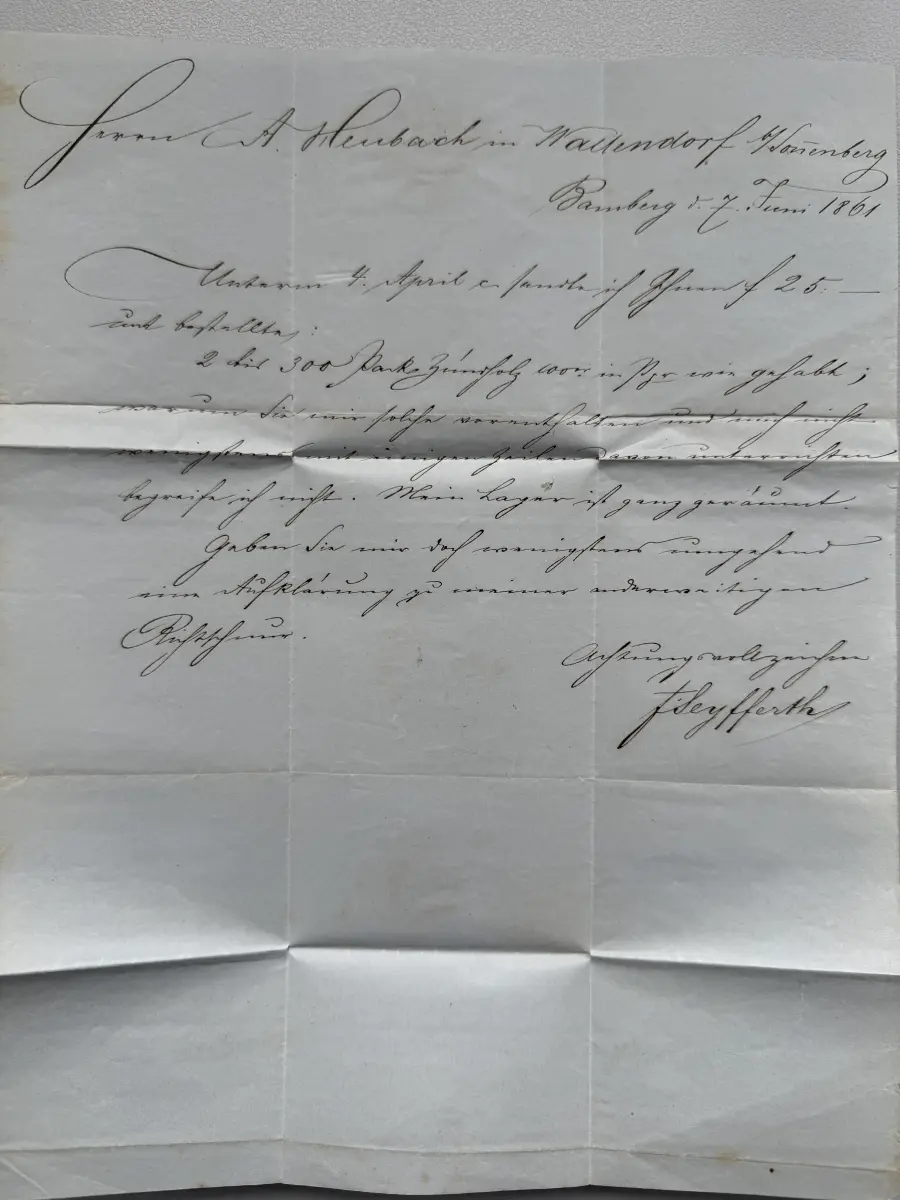 Herrn A. Heubach in Wallendorf b/Sonnenberg
Bamberg d. 7. Juni 1861
Unterm 4. April c. sandte ich Ihnen f 25.—
und bestellte:
2 bis 300 Pack Zündholz in wie gehabt;
warum Sie mir solche vorenthalten und mich nicht
wenigstens mit einigen Zeilen davon unterrichten
begreife ich nicht. Mein Lager ist ganz geräumt.
Geben Sie mir doch wenigstens umgehend
eine Aufklärung zu meiner anderweitigen
Richtschnur.
Achtungsvoll zeichne
F. Seyfferth